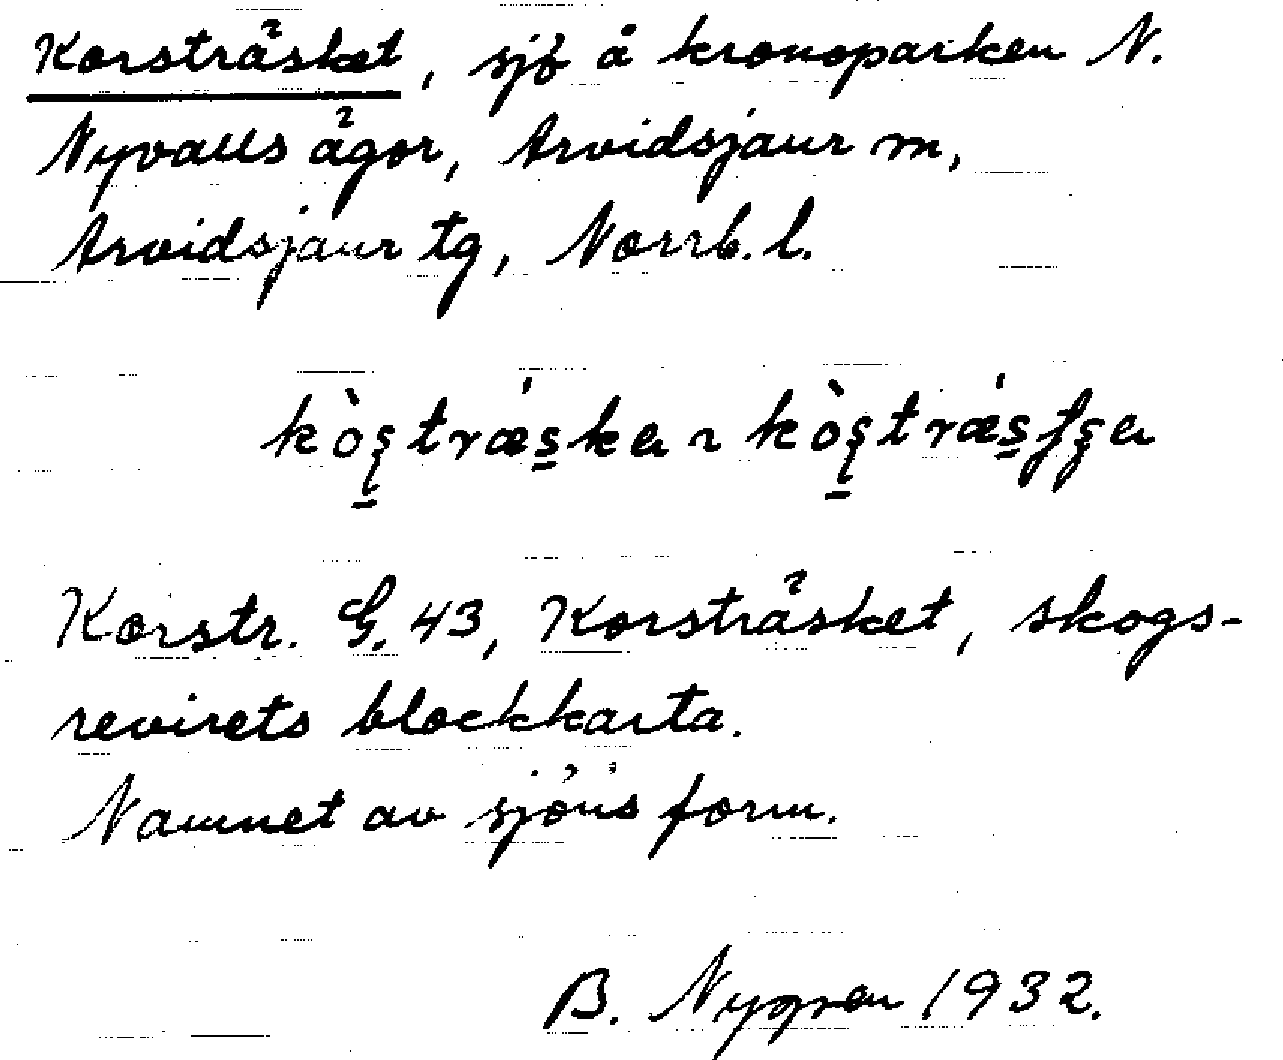 Korsträsket, sjö å kronoparken N.
Nyvalls ägor, Arvidsjaur m,
Arvidsjaur tg, Norrb. l.
Korstr. G. 43, Korsträsket, skogs-
revirets blockkarta.
Namnet av sjöns form.
B. Nygren 1932.